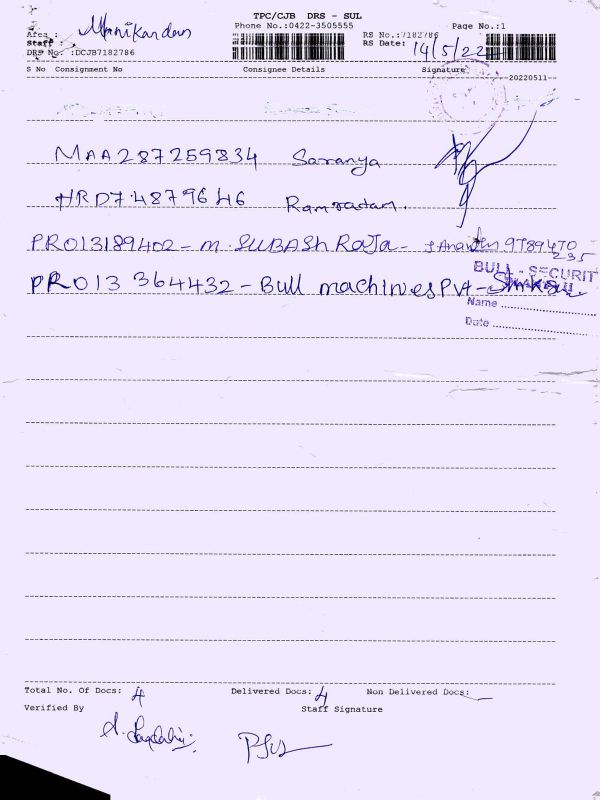 TPC/CJB DRS - SUL
Phone No.:0422-3505555 Page No.:1
Area : Manikandan RS No.:7182786
Staff : RS Date: 14/5/22
DRS No. :DCJB7182786
S No Consignment No Consignee Details Signature
20220511
MAA287259834 Saranya
HRD74879646 Ramratan.
PRO13189402 - M. SUBASH RAJA - 9789470
235
PRO13 364432 - Bull machines Pvt -
BULL - SECURIT
Name
Date
Total No. Of Docs: 4 Delivered Docs: 4 Non Delivered Docs: —
Verified By Staff Signature